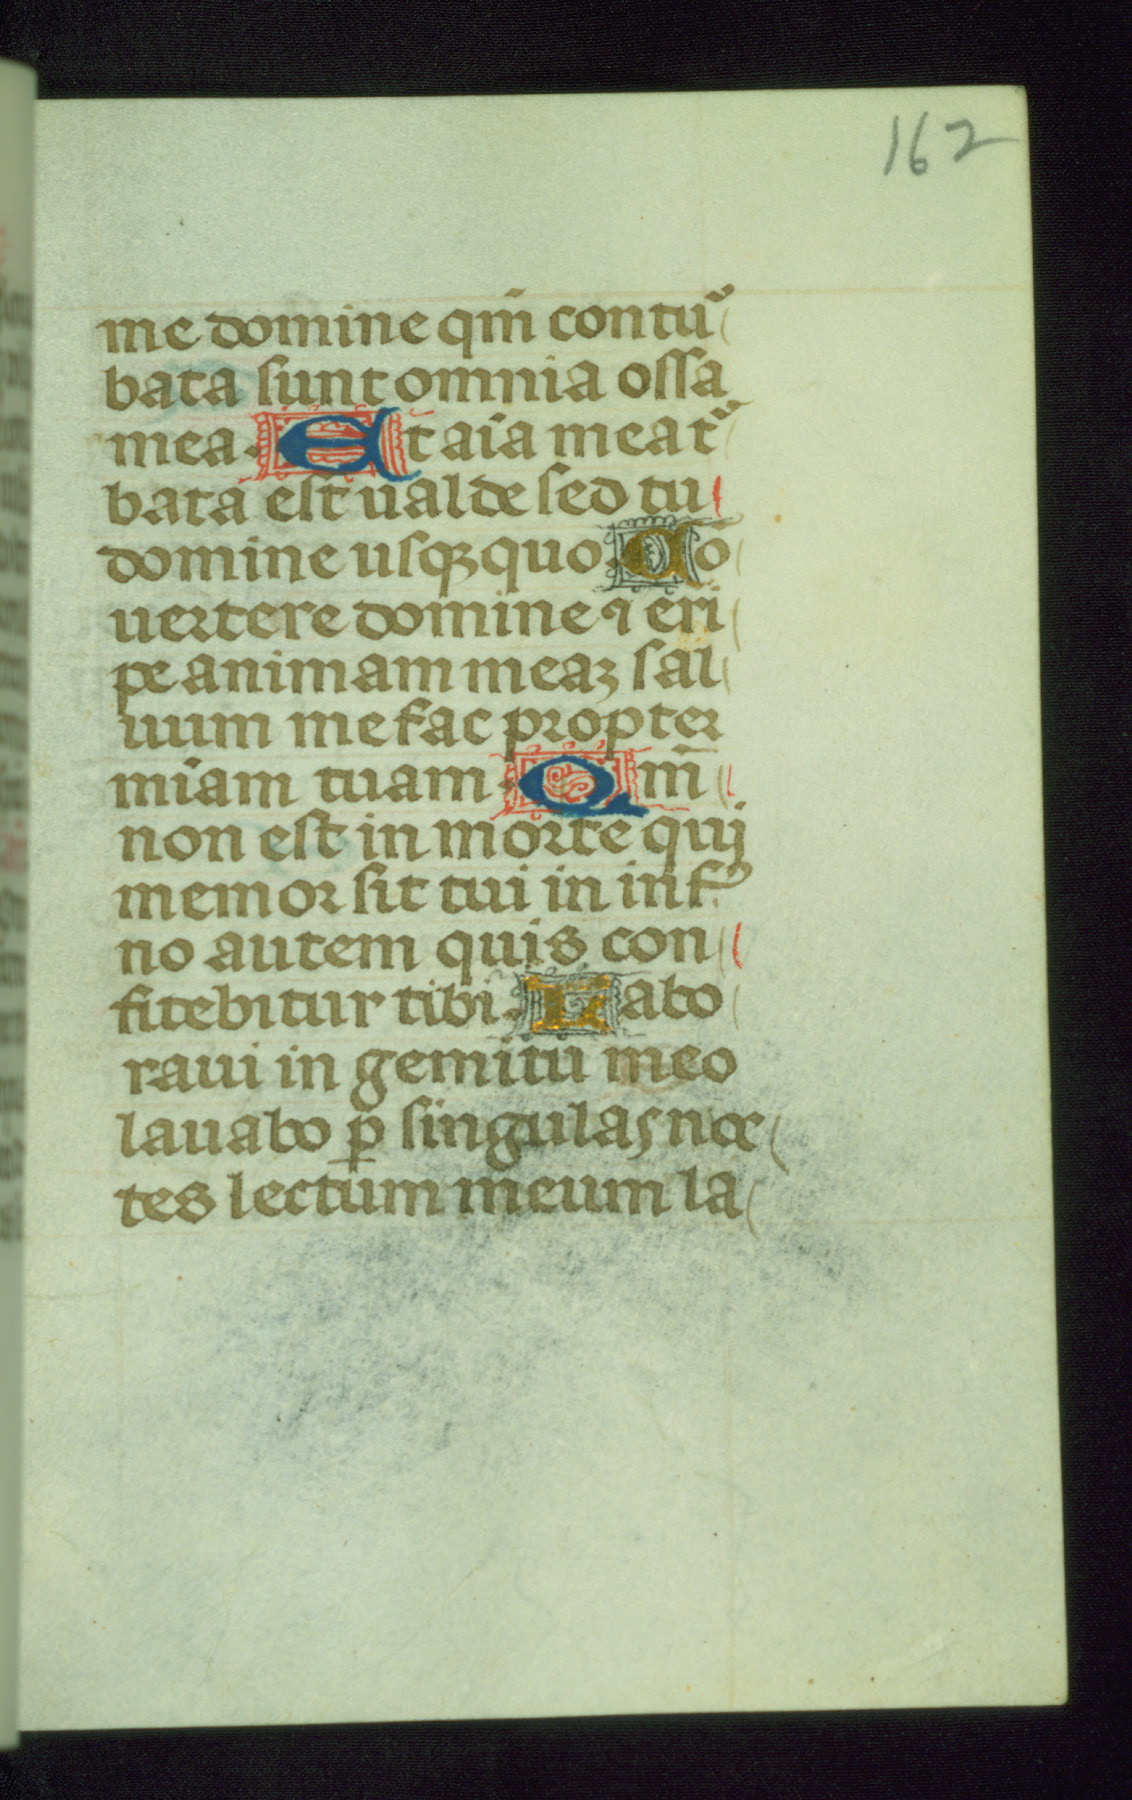 162
me domine qm̄ contu᷑
bata sunt omnia ossa
mea. Et aīa mea t᷑
bata est ualde sed tu
domine usqꝫ quo. Cō
uertere domine ⁊ eri
pe animam meaꝫ sal
uum me fac propter
mīam tuam. Qm̄
non est in morte qui
memor sit tui in inf᷑
no autem quis con
fitebitur tibi. Labo
raui in gemitu meo
lauabo ꝑ singulas noc
tes lectum meum la